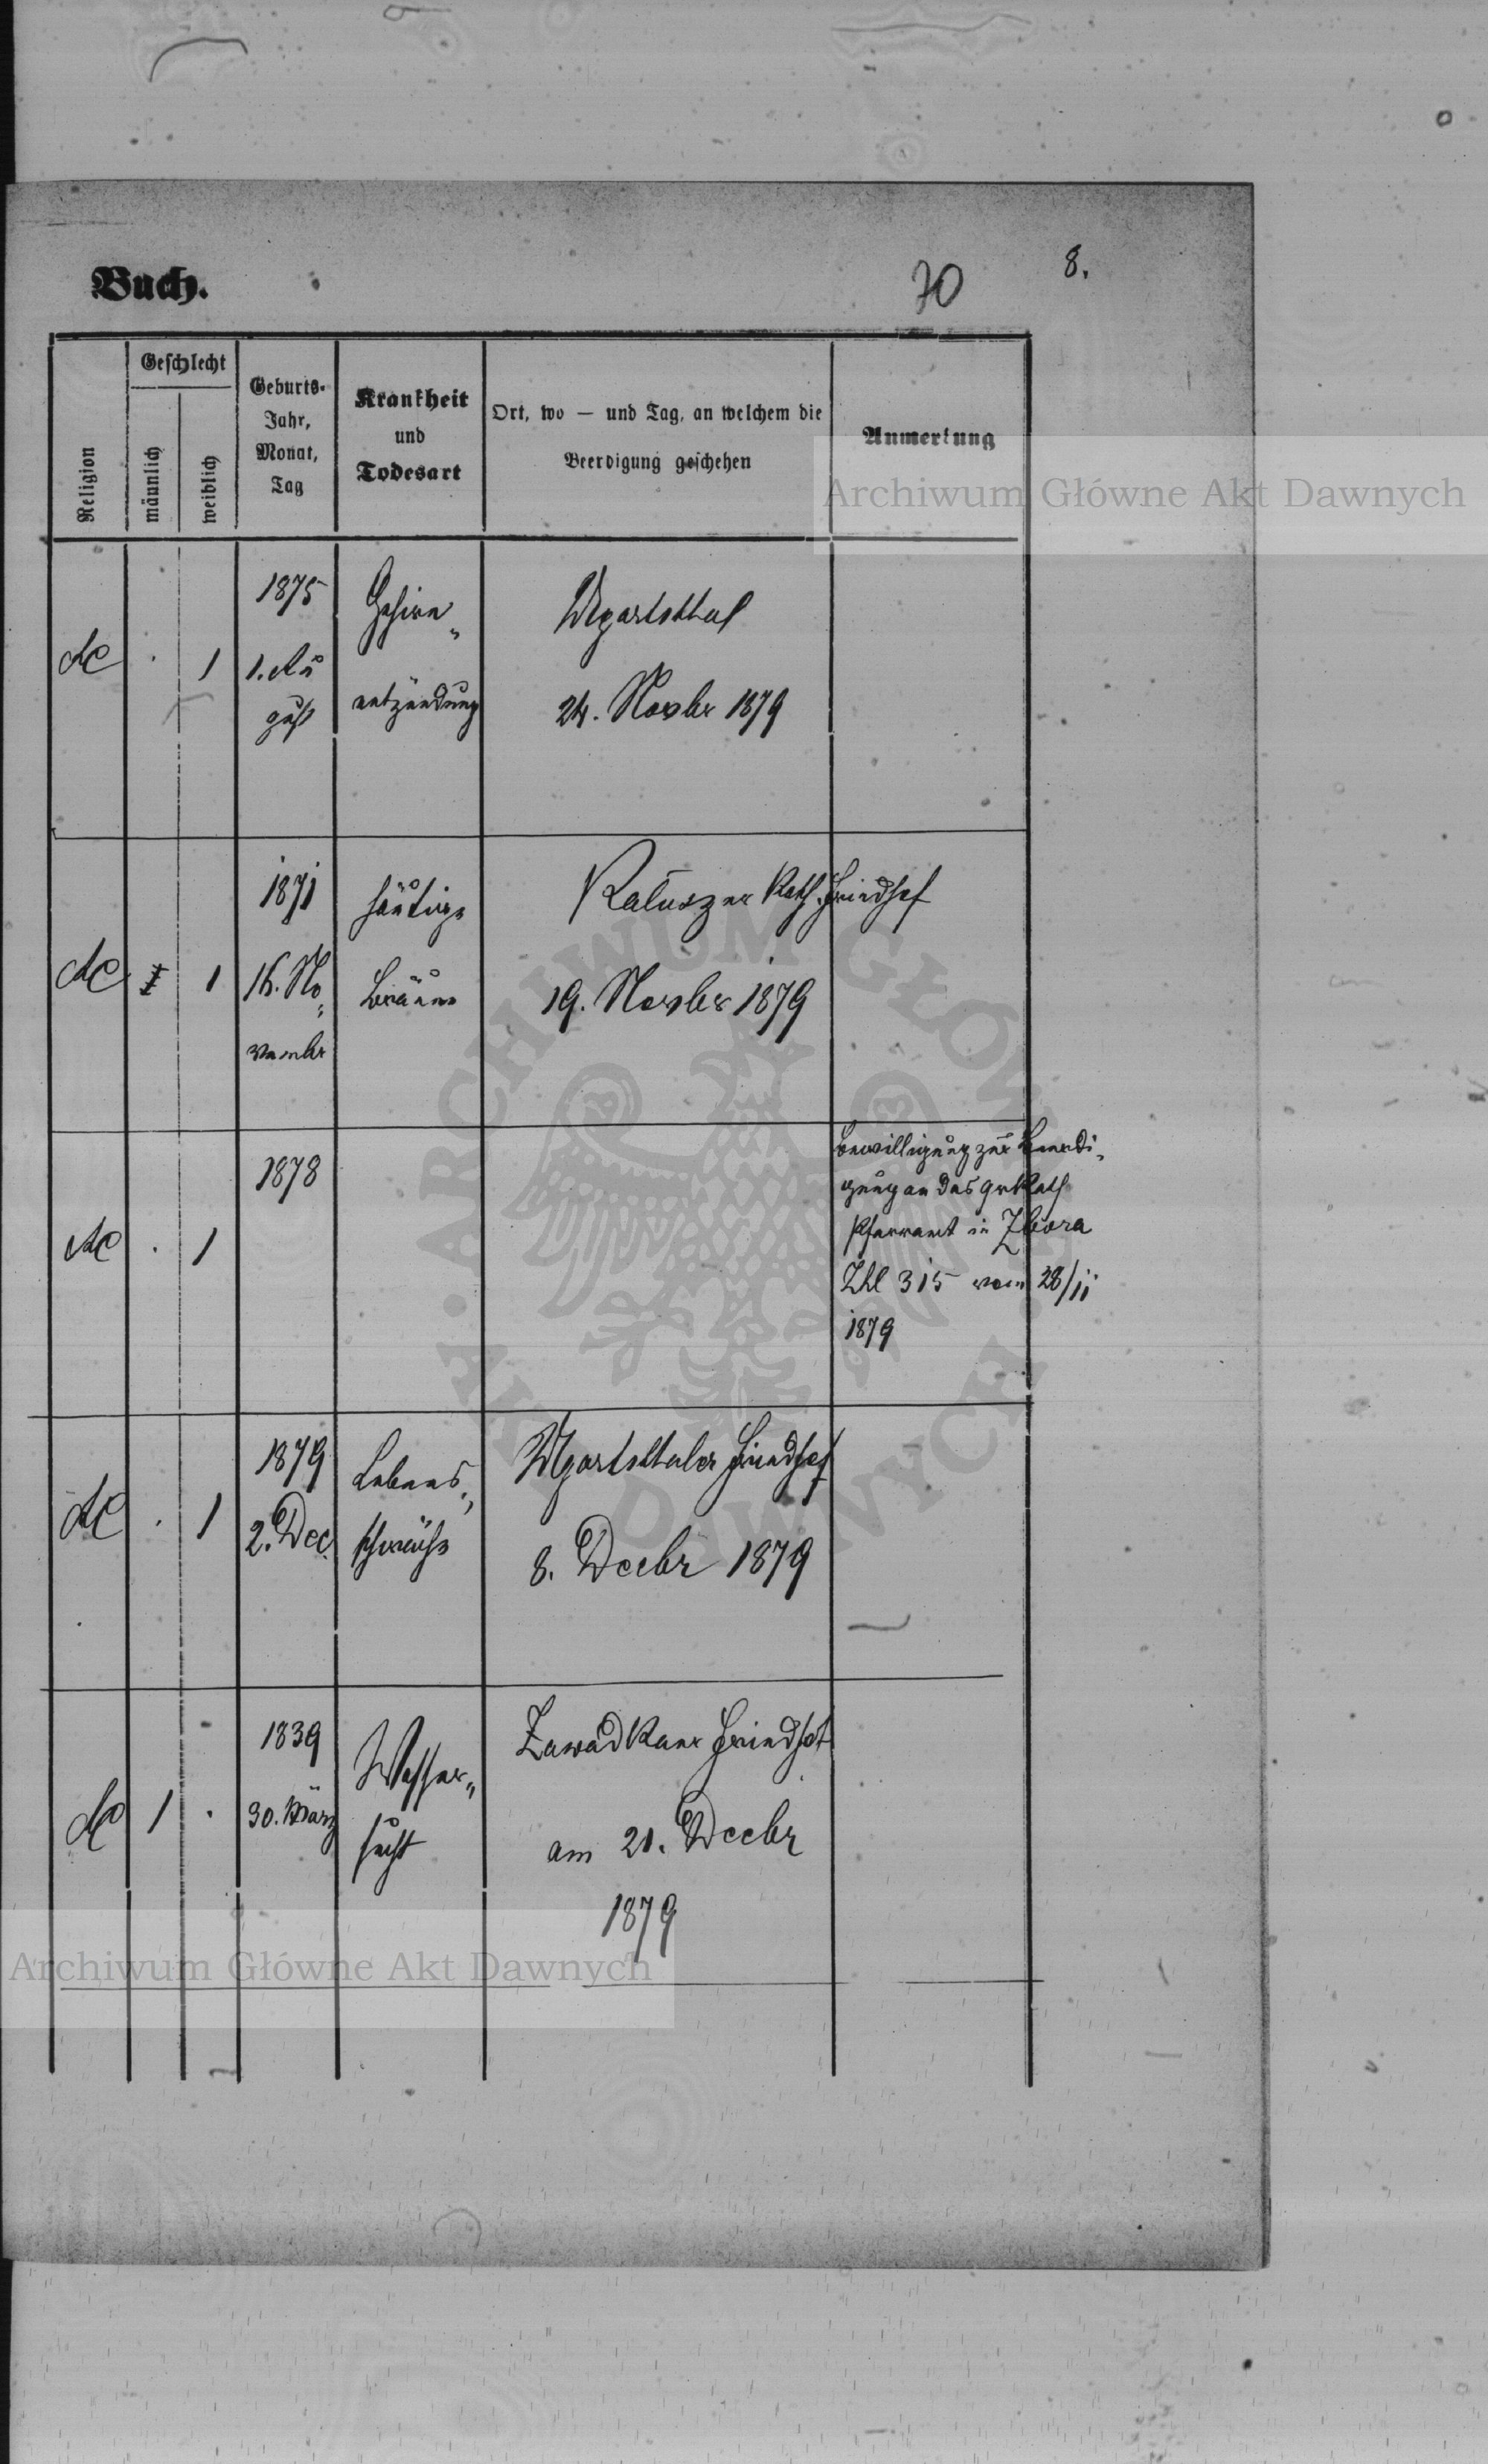 Buch.
70
8.
Religion
Geschlecht
männlich
weiblich
Geburts-
Jahr,
Monat,
Tag
Krankheit
und
Todesart
Ort, wo — und Tag, an welchem die
Beerdigung geschehen
Anmerkung
Archiwum Główne Akt Dawnych
AC
.
1
1875
1. Au
gust
Gehirn„
entzündung
Ugartsthal
24. Novbr 1879
AC
1
1871
16. No„
vember
häutige
Bräune
Kaluszer Kath. Friedhof
19. Novbr 1879
AC
.
1
1878
Bewilligung zur Beerdi„
gung an das gr Kath
Pfarramt in Zbora
Zhl 315 vom 28/11
1879
AC
.
1
1879
2. Dec.
Lebens„
schwäche
Ugartsthaler Friedhof
8. Decbr 1879
AC
1
.
1839
30. März
Wasser„
sucht
Zawadkaer Friedhof
am 21. Decbr
1879
Archiwum Główne Akt Dawnych
ARCHIWUM GŁÓWNE AKT DAWNYCH